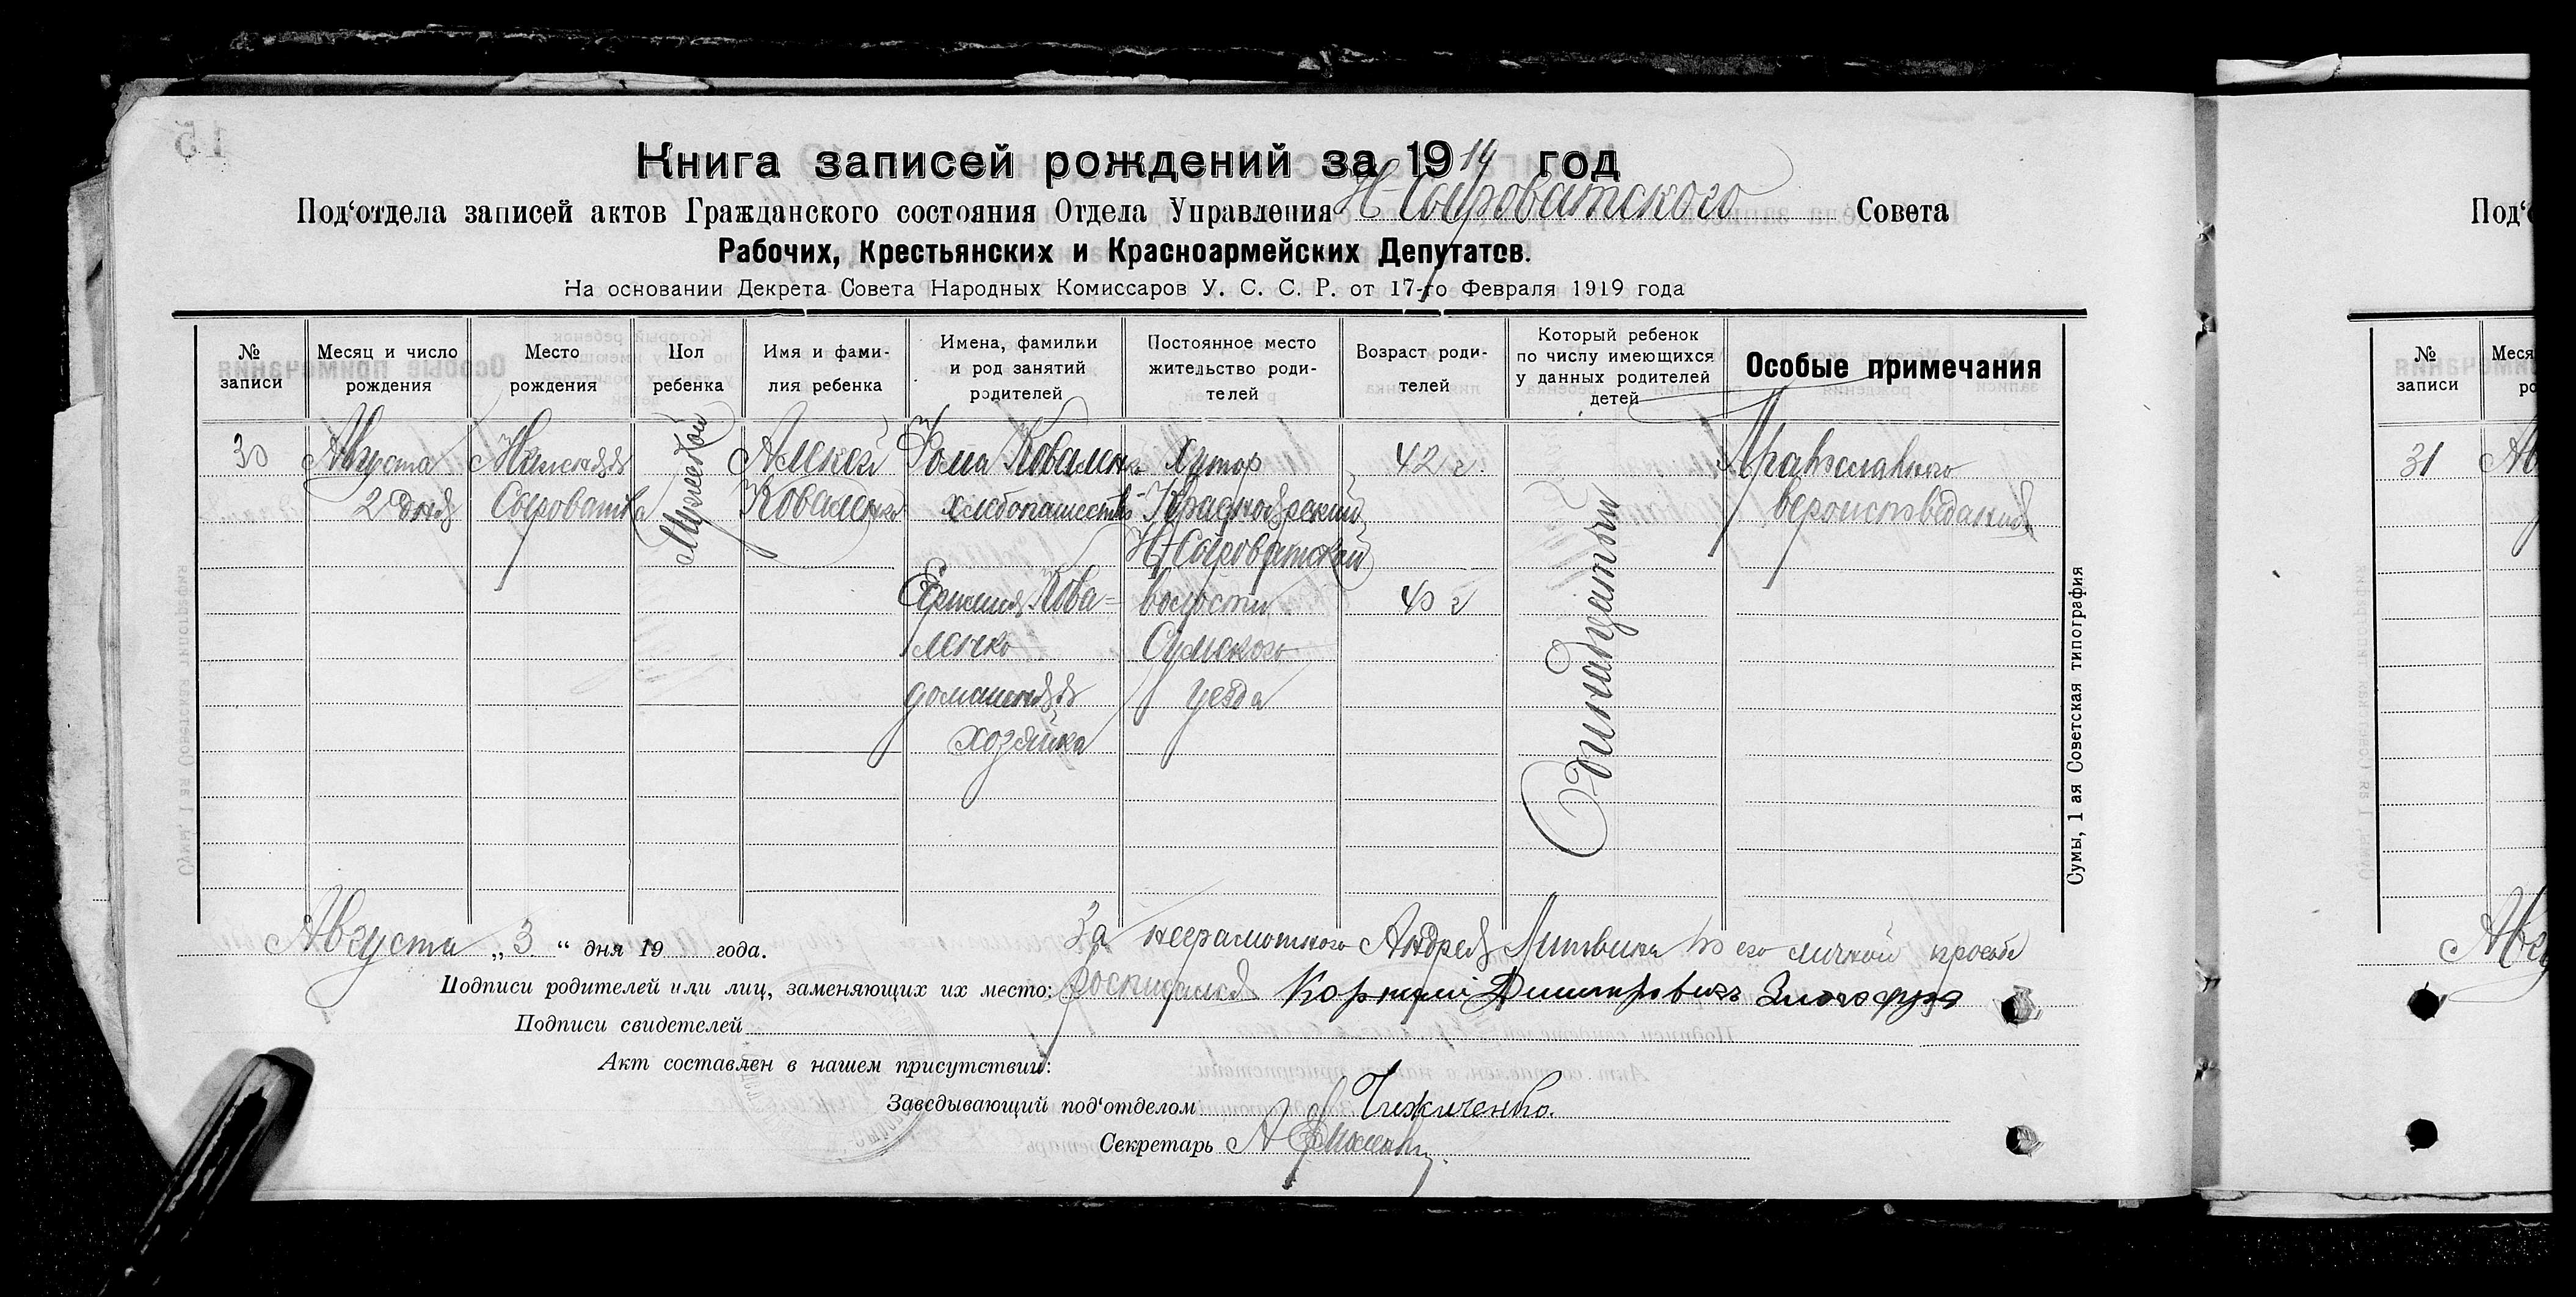 Книга записей рождений за 1919 год
Под‘отдела записей актов Гражданского состояния Отдела Управления Н-Сыроватского Совета
Рабочих, Крестьянских и Красноармейских Депутатов.
На основании Декрета Совета Народных Комиссаров У. С. С. Р. от 17-го Февраля 1919 года
№ записи
Месяц и число рождения
Место рождения
Пол ребенка
Имя и фами- лия ребенка
Имена, фамилии и род занятий родителей
Постоянное место жительство роди- телей
Возраст роди- телей
Который ребенок по числу имеющихся у данных родителей детей
Особые примечания
30
Августа
2 дня
Нижняя
Сыроватка
Мужеской
Алексей
Коваленко
Фома Коваленко
хлебопашество
Коваленко
домашняя
хозяйка
Хутор
Красноярский
Н-Сыроватской
волости
Сумского
уезда
42 г.
40 г
Одинадцатый
Православного
вероисповедания
Августа „ 3 “ дня 19 года.
За неграмотного Андрея Литвина по его личной просьбе
Подписи родителей или лиц, заменяющих их место: росписался Корнилий Димитровичъ
Подписи свидетелей
Акт составлен в нашем присутствии:
Заведывающий под‘отделом Чижиченко.
Секретарь А
Сумы, 1 ая Советская типография
Под‘о
№ записи
Меся
ро
31
Ав
Авг
15